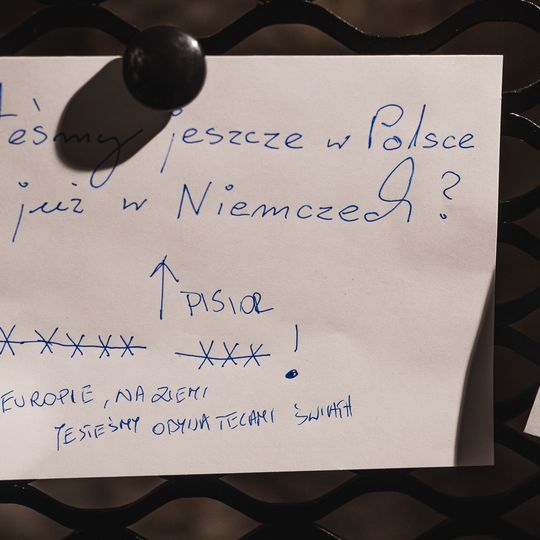 eśmy jeszcze w Polsce
już w Niemczech?
↑ PISIOR
X X X X X X X X !
EUROPIE, NA ZIEMI
JESTEŚMY OBYWATELAMI ŚWIATA